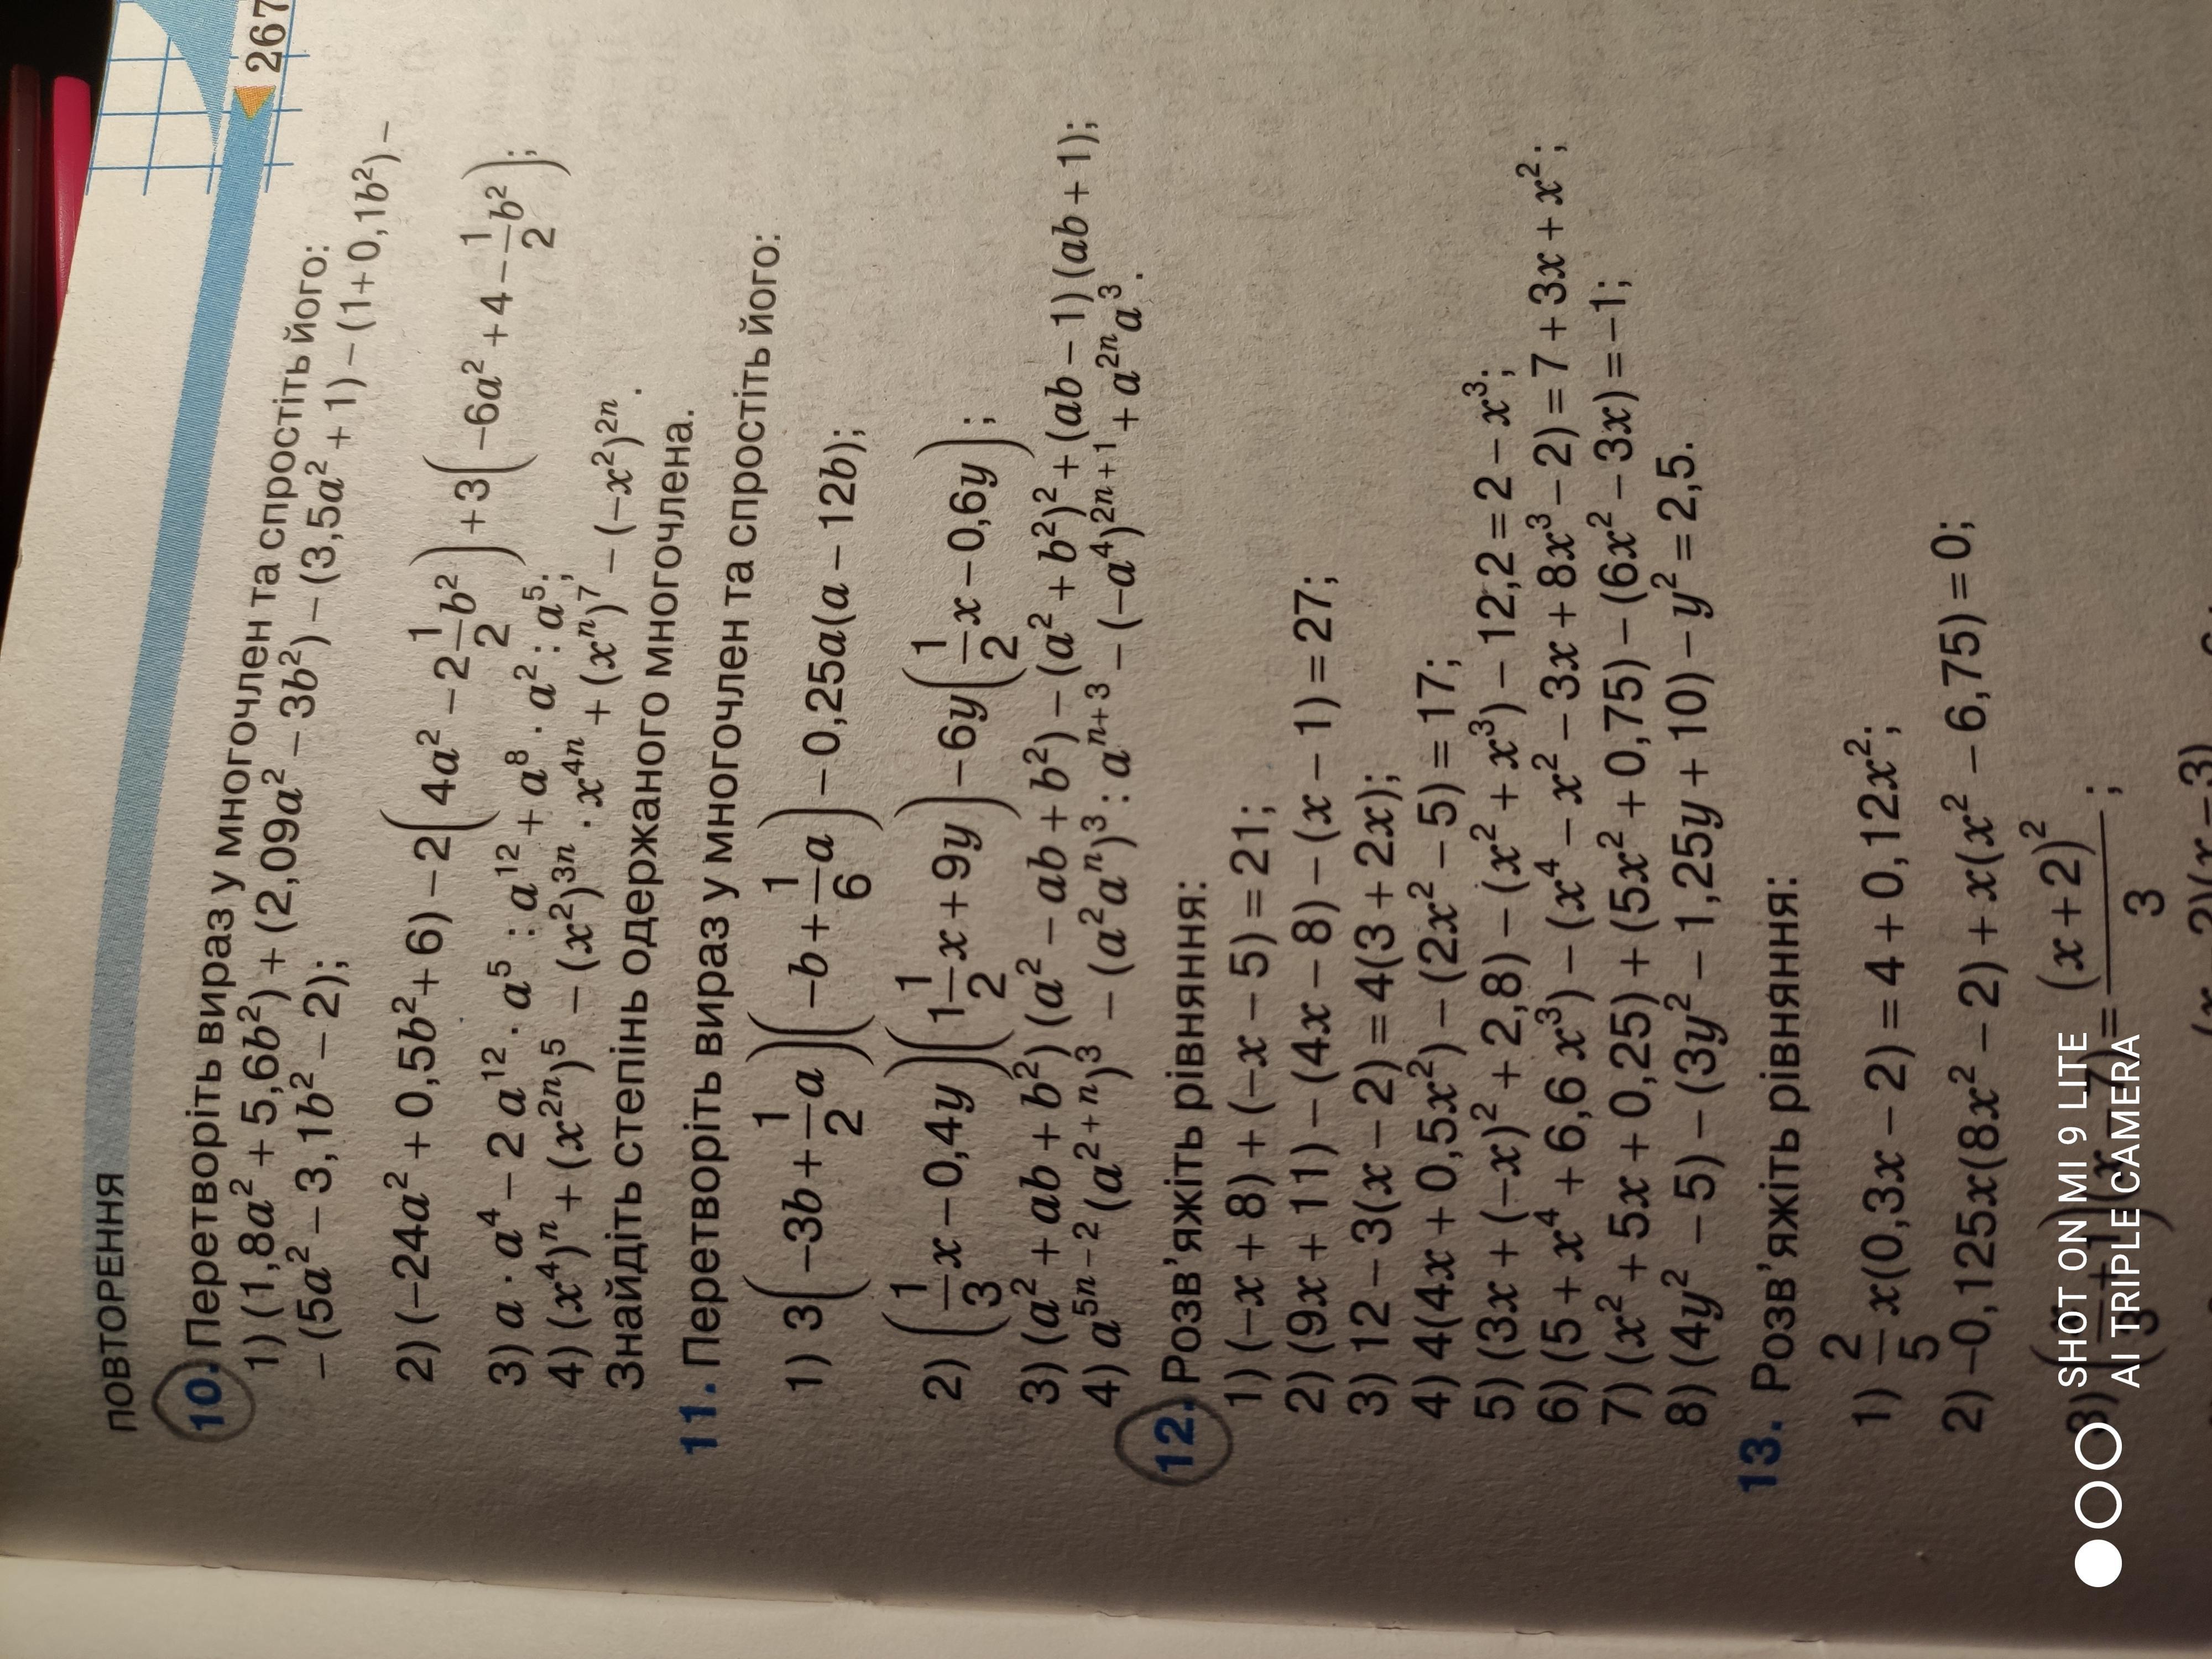 ПОВТОРЕННЯ
267
10. Перетворіть вираз у многочлен та спростіть його:
1) (1,8a² + 5,6b²) + (2,09a² – 3b²) – (3,5a² + 1) – (1 + 0,1b²) –
– (5a² – 3,1b² – 2);
2) (–24a² + 0,5b² + 6) – 2(4a² – 2 1/2 b²) + 3(–6a² + 4 – 1/2 b²);
3) a · a⁴ – 2a¹² · a⁵ : a¹² + a⁸ · a² : a⁵;
4) (x⁴)ⁿ + (x²ⁿ)⁵ – (x²)³ⁿ · x⁴ⁿ + (xⁿ)⁷ – (–x²)²ⁿ.
Знайдіть степінь одержаного многочлена.
11. Перетворіть вираз у многочлен та спростіть його:
1) 3(–3b + 1/2 a)(–b + 1/6 a) – 0,25a(a – 12b);
2) (1/3 x – 0,4y)(1 1/2 x + 9y) – 6y(1/2 x – 0,6y);
3) (a² + ab + b²)(a² – ab + b²) – (a² + b²)² + (ab – 1)(ab + 1);
4) a⁵ⁿ⁻² (a²⁺ⁿ)³ – (a²aⁿ)³ : aⁿ⁺³ – (–a⁴)²ⁿ⁺¹ + a²ⁿa³.
12. Розв’яжіть рівняння:
1) (–x + 8) + (–x – 5) = 21;
2) (9x + 11) – (4x – 8) – (x – 1) = 27;
3) 12 – 3(x – 2) = 4(3 + 2x);
4) 4(4x + 0,5x²) – (2x² – 5) = 17;
5) (3x + (–x)² + 2,8) – (x² + x³) – 12,2 = 2 – x³;
6) (5 + x⁴ + 6,6x³) – (x⁴ – x² – 3x + 8x³ – 2) = 7 + 3x + x²;
7) (x² + 5x + 0,25) + (5x² + 0,75) – (6x² – 3x) = –1;
8) (4y² – 5) – (3y² – 1,25y + 10) – y² = 2,5.
13. Розв’яжіть рівняння:
1) 2/5 x(0,3x – 2) = 4 + 0,12x²;
2) –0,125x(8x² – 2) + x(x² – 6,75) = 0;
3) = (x + 2)²/3;
SHOT ON MI 9 LITE
AI TRIPLE CAMERA